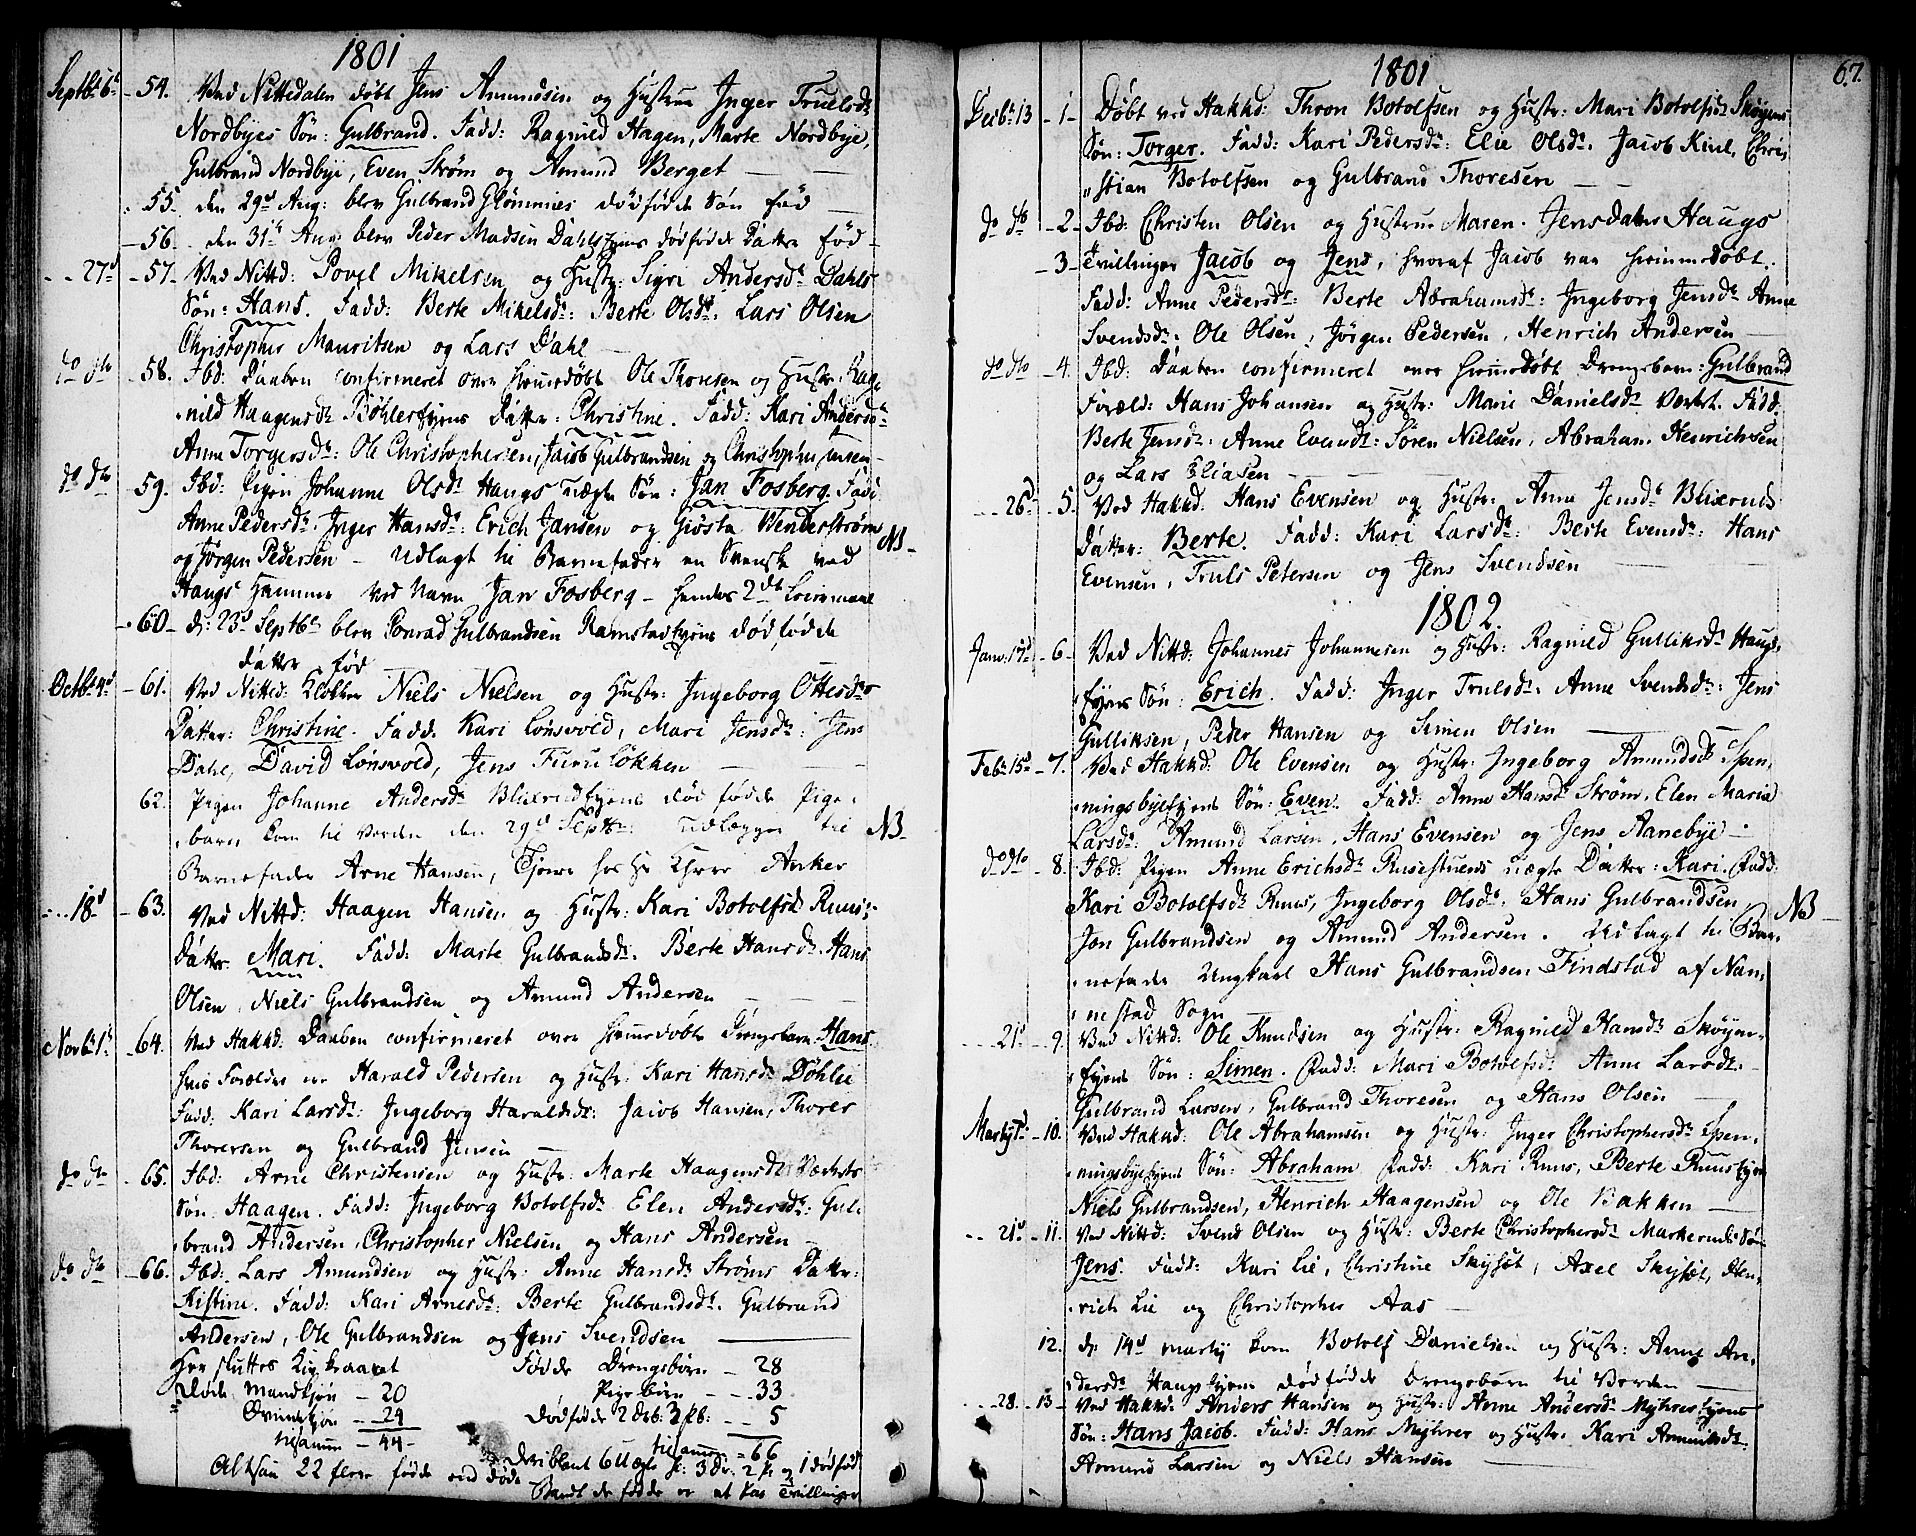 1801
Septbr 6te - 54. Ved Nittedalen døbt Jens Amundsen og Hustrue Inger Truelsdr
Nordbyes Søn: Gulbrand. Fadd: Ragnild Hagen, Marte Nordbye,
Gulbrand Nordbye, Even Strøm og Amund Berget
55. den 29d Aug: blev Gulbrand Glømmies dødfødde Søn fød
56. den 31te Aug: blev Peder Madsen Dahlsejens dødfødde Datter fød
27d - 57. Ved Nittd: Povel Mikelsen og Hustr: Sigri Andersdr Dahls
Søn: Hans. Fadd: Berte Mikelsdr: Berte Olsdr: Lars Olsen
Christopher Mauritsen og Lars Dahl
do dto - 58. Ibd: Daaben confirmeret over hiemmedøbt Ole Thoresen og Hustr: Rag-
nild Haagensdr Bøhlerejens Datter: Christine. Fadd: Kari Andersdr
Anne Torgersdr: Ole Christophersen, Jacob Gulbrandsen og Christopher Jensen
do dto 59. Ibd: Pigen Johanne Olsdr Haugs uægte Søn: Jan Fosberg. Fadd:
Anne Pedersdr. Inger Hansdr: Erich Jansen og Giösta Wenderström
og Jørgen Pedersen - Udlagt til Barnefader en Svensk ved NB
Haugs Hammer ved Navn Jan Fosberg - hendes 2det Leiermaal
60 - d: 23d Septbr blev Conrad Gulbrandsen Ramstadejens dødfødde
datter fød
Octbr 4d - 61. Ved Nitted: Klokker Niels Nielsen og Hustr: Ingeborg Ottesdrs
Datter: Christine. Fadd: Kari Lønsvold, Mari Jensdr: Jens
Dahl, David Lønsvold, Jens Furuløkken
62. Pigen Johanne Andersdr Blixrudejens dødfødde Pige-
barn kom til Verden den 29d Septbr: udlægger til NB
Barnefader Arne Hansen, Tjener hos Hr Anker
18d - 63. Ved Nittd: Haagen Hansen og Hustr: Kari Botolfsdr Ruus
Datter Mari. Fadd: Marte Gulbrandsdr. Berte Hansdr. Hans
Olsen, Niels Gulbrandsen og Amund Andersen
Novbr 1te - 64. Ved Hakkd: Daaben confirmeret over hiemmedøbt Drengebarn Hans
hvis Forældre er Harald Pedersen og Hustr: Kari Hansdr Døhlie
Fadd: Kari Larsdr: Ingeborg Haraldsdr: Jacob Hansen, Thorer
Thorersen og Gulbrand Jensen
do dto - 65. Ibd: Arne Christensen og Hustr: Marte Haagensdr Værkets
Søn Haagen. Fadd: Ingeborg Botolfsdr. Elen Andersdr: Gul-
brand Andersen, Christopher Nielsen og Hans Andersen
do dto - 66. Ibd: Lars Amundsen og Hustr: Anne Hansdr Strøms Datter:
Kistine. Fadd: Kari Arnesdr: Berte Gulbrandsdr. Gulbrand
Andersen, Ole Gulbrandsen og Jens Svendsen
Her sluttes Kirkeaaret Fødde Drengebørn - 28
Døde Mandkjøn - 20 Pigebørn - 33
Qvindekjøn - 24 Dødfødde 2 Drb: 3 Pb: - 5
tilsamm - 44 - tilsamm = 66
Altsaa 22 flere fødde end døde Deriblant 6 uægte 3 Dr. 2 P og 1 dødfød
Blandt de fødde er et Par Tvillinger
67.
1801
Decbr 13 - 1 - Døbt ved Hakkd: Thron Botolfsen og Hustr: Mari Botolfsdr Skøyens
Søn: Torger. Fadd: Kari Pedersdr: Elie Olsdr. Jacob Kiul, Chri-
stian Botolfsen og Gulbrand Thoresen
do dto - 2 - Ibd: Christen Olsen og Hustrue Maren Jensdatter Haugs
- 3 - Tvillinger Jacob og Jens, hvoraf Jacob var hiemmedøbt.
Fadd: Anne Pedersdr: Berte Abrahamsdr: Ingeborg Jensdr Anne
Svendsdr: Ole Olsen, Jørgen Pedersen, Henrich Andersen
do dto - 4. Ibd: Daaben confirmeret over hiemmedøbt Drengebarn: Gulbrand
Foræld: Hans Johansen og Hustr: Marie Danielsdr Værket. Fadd:
Berte Jensdr: Anne Evensdr: Søren Nielsen, Abraham Henrichsen
og Lars Eliasen
26d - 5. Ved Hakkd: Hans Evensen og Hustr: Anne Jensdr Blixruds
Datter: Berte. Fadd: Kari Larsdr: Berte Evensdr: Hans
Evensen, Truls Petersen og Jens Svendsen
1802.
Janv: 17d - 6 - Ved Nittd: Johannes Johannesen og Hustr: Ragnild Gulliksdr Haugs-
ejens Søn: Erich. Fadd: Inger Trulsdr. Anne Svendsdr: Jens
Gulliksen, Peder Hansen og Simen Olsen
Febr: 15d - 7. Ved Hakkd: Ole Evensen og Hustr: Ingeborg Amundsdr Spen-
ningsbyeejens Søn: Even. Fadd: Anne Hansdr Strøm, Elen Maria
Larsdr. Amund Larsen, Hans Evensen og Jens Aanebye
do dto - 8. Ibd: Pigen Anne Erichsdr Ruusestuens uægte Datter: Kari. Fadd:
Kari Botolfsdr Ruus, Ingeborg Olsdr. Hans Gulbrandsen, NB
Jon Gulbrandsen og Amund Andersen. Udlagt til Bar-
nefader Ungkarl Hans Gulbrandsen Findstad af Nan-
nestad Sogn
21d - 9. Ved Nittd: Ole Knudsen og Hustr: Ragnild Hansdr Skøyen-
ejens Søn: Simen. Fadd: Mari Botolfsdr Anne Larsdr.
Gulbrand Larsen, Gulbrand Thoresen og Hans Olsen
Marty 7d - 10. Ved Hakkd: Ole Abrahamsen og Hustr: Inger Christophersdr Spen-
ningsbyeejens Søn: Abraham Fadd: Kari Ruus, Berte Ruusejen
Niels Gulbrandsen, Henrich Haagensen og Ole Bakken
21d - 11. Ved Nittd: Svend Olsen og Hustr: Berte Christophersdr Markerud Søn
Jens. Fadd: Kari Lie, Christine Skyset, Axel Skyset, Hen-
rich Lie og Christopher Aas
12. d. 14d marty kom Botolf Danielsen og Hustr: Anne An-
dersdr Haugsejens dødfødde Drengebørn til Verden
28. - 13 - Ved Hakkd: Anders Hansen og Hustr: Anne Andersdr Myhrerejens
Søn: Hans Jacob. Fadd: Hans Myhrer og Hustr. Kari Amundsdr.
Amund Larsen og Niels Hansen